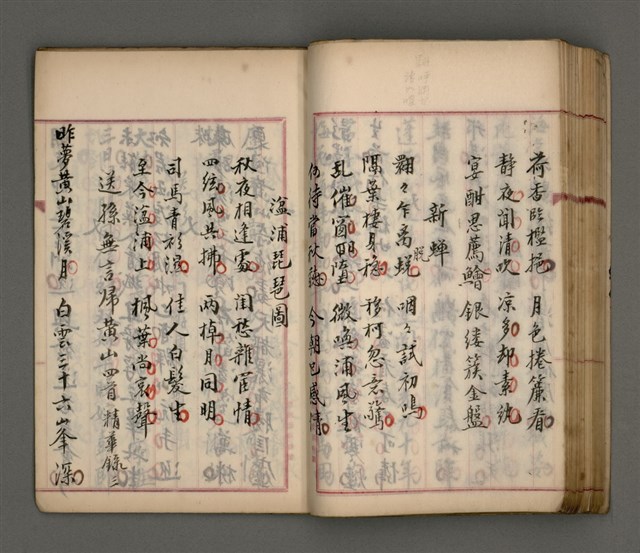 荷香臨檻挹 月色捲簾看
靜夜聞清吹 涼多却素紈
宴酣思薦鱠 銀縷簇金盤
新蟬
翾々乍離蛻 咽々試初鳴
隔葉棲身穩 移柯忽意驚
乱催窗日墮 微喚浦風生
何待當秋聽 今朝已感情
湓浦琵琶圖
秋夜相逢處 閨愁雜宦情
四絃風共拂 兩棹月同明
司馬青衫濕 佳人白髮生
至今湓浦上 楓葉尚哀聲
送孫無言歸黃山四首 精華錄三
昨夢黃山碧溪月 白雲三十六峯深